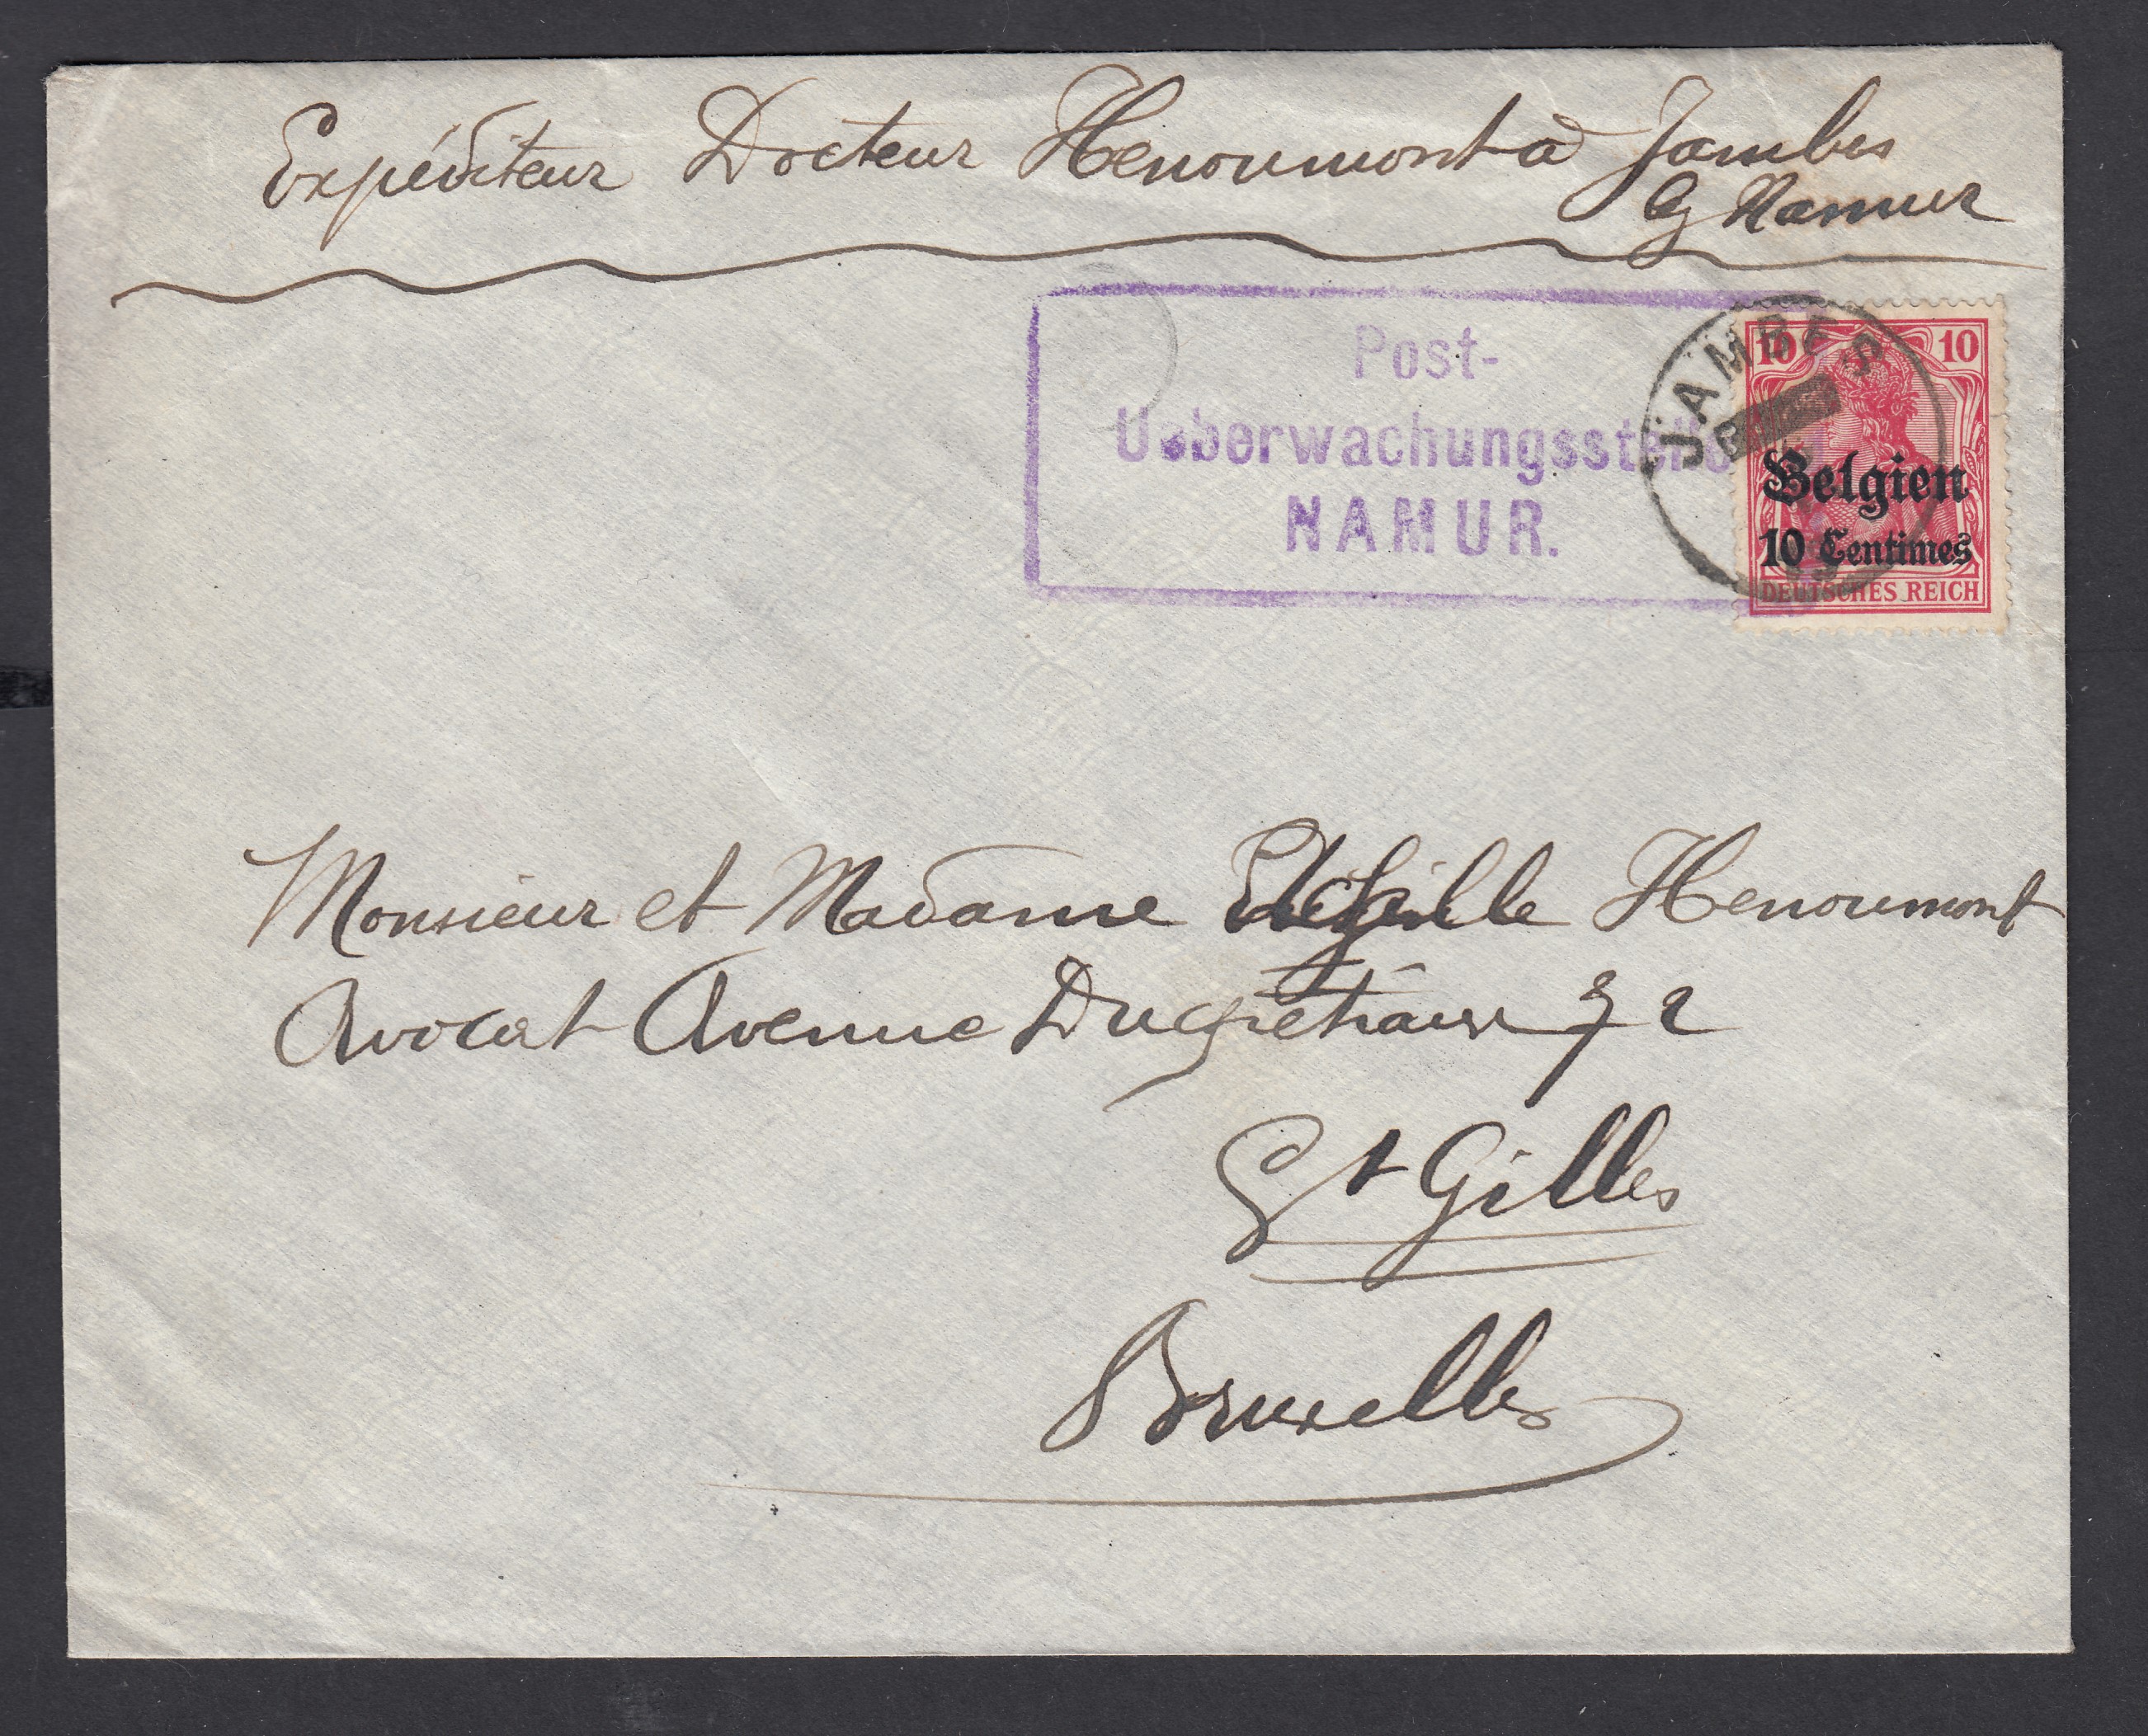 Expéditeur Docteur Henoumont à Jambes
Namur
Post-
Ueberwachungsstelle
NAMUR.
JAMBES
10 10
Belgien
10 Centimes
DEUTSCHES REICH
Monsieur et Madame Henoumont
Avocat Avenue Ducpétiaux 72
St Gilles
Bruxelles